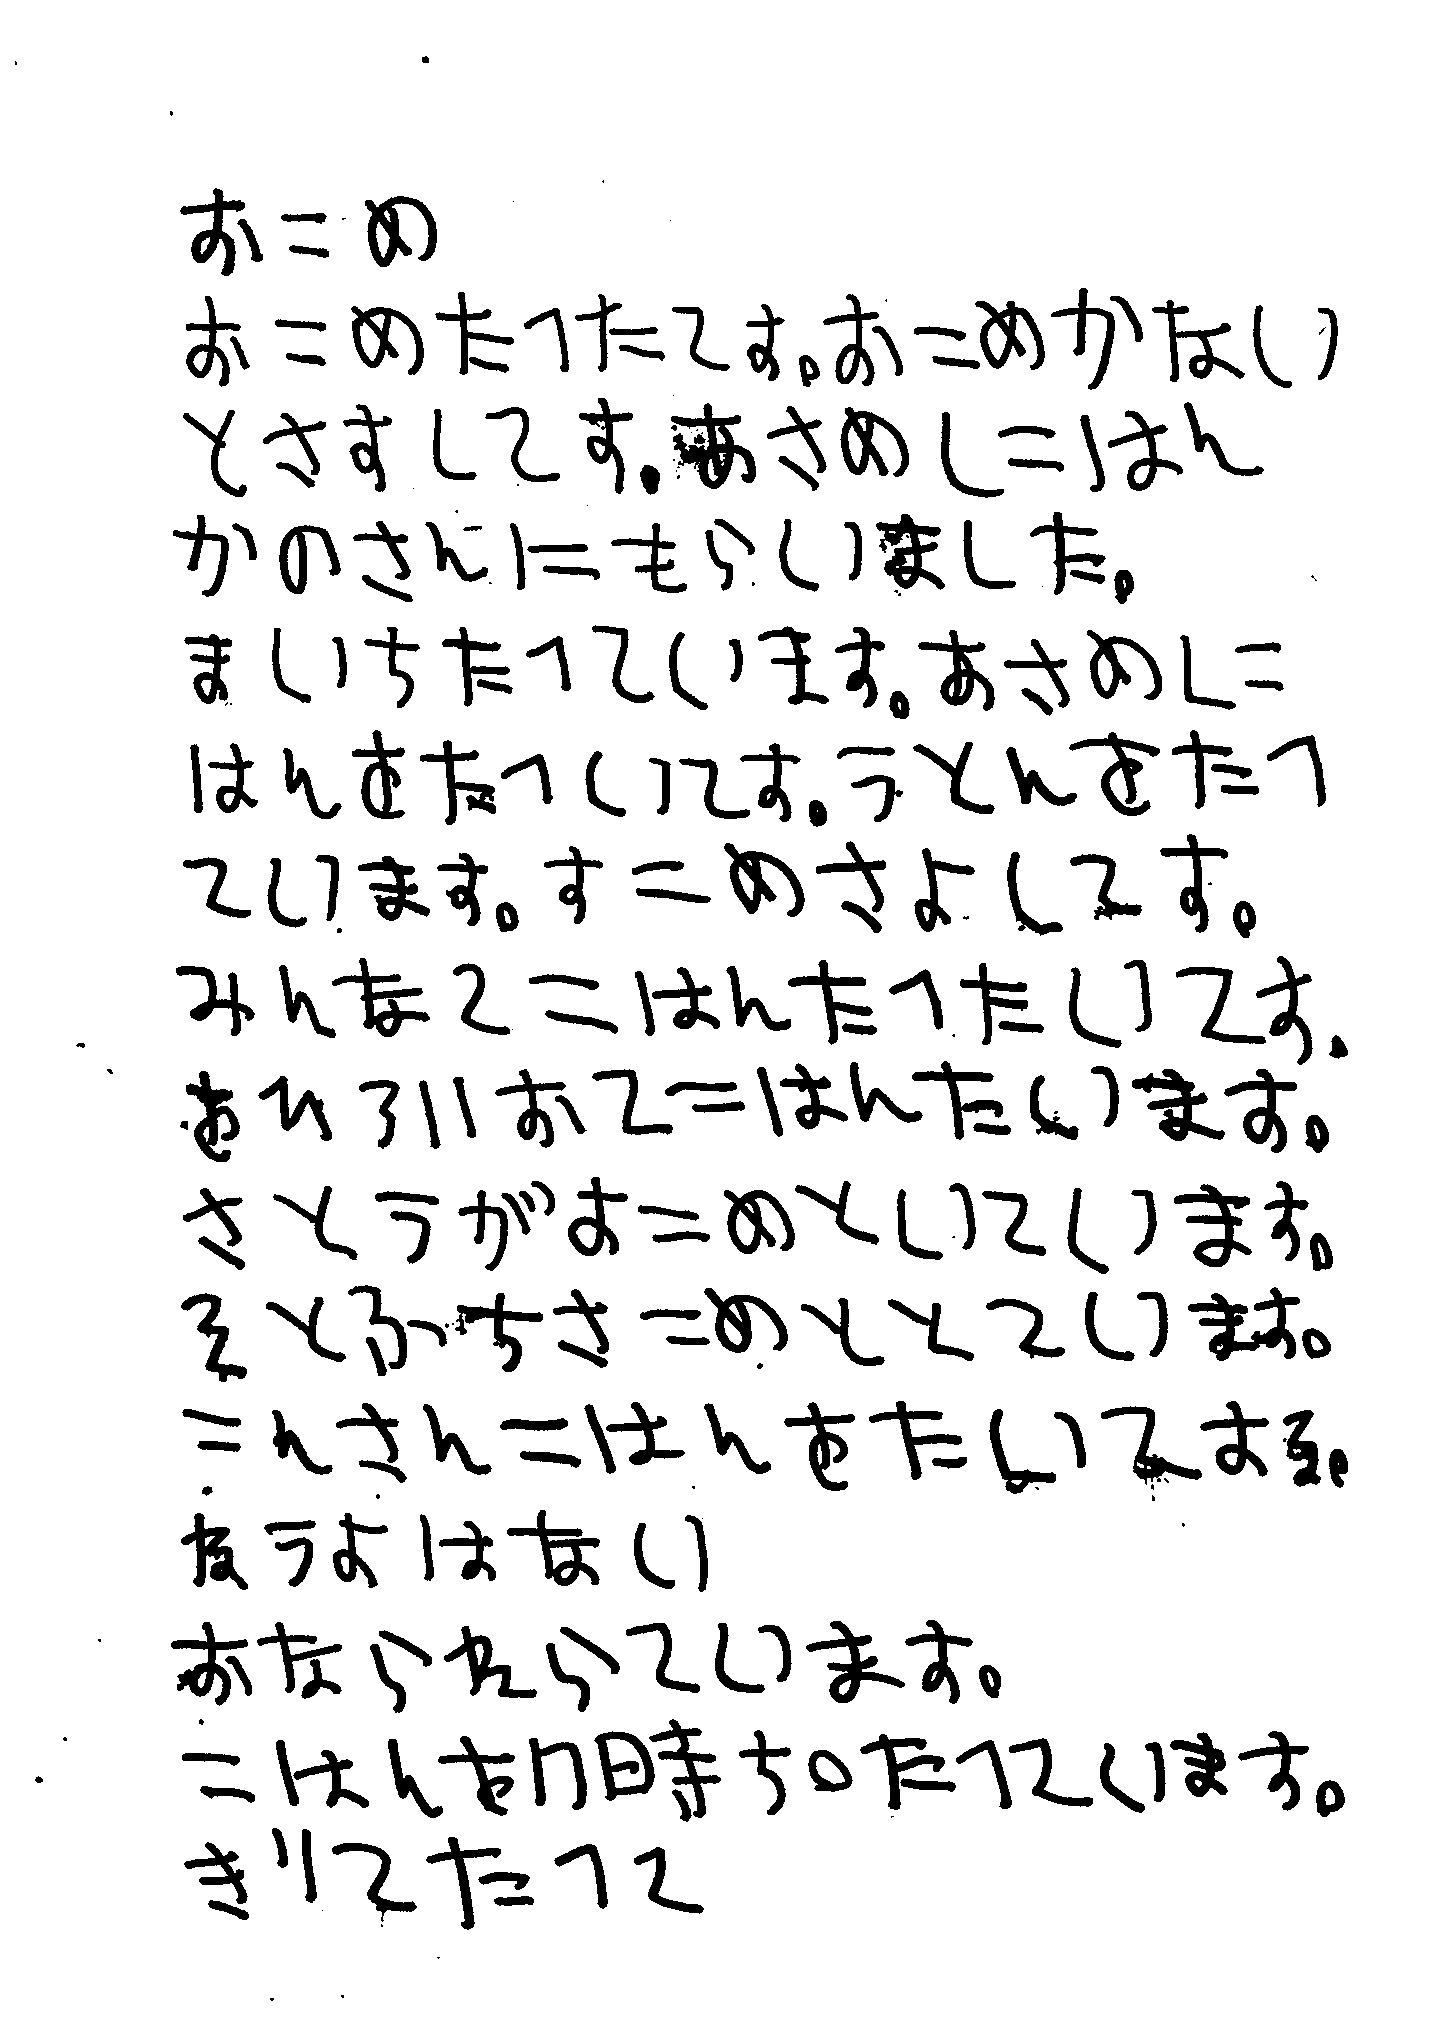 おこめ
おこめたへたてす。おこめかない
とさすしてす。あさめしこはん
かのさんにもらいました。
まいちたへています。あさめしこ
はんをたへいてす。うとんをたへ
ています。すこめさよしてす。
みんなてこはんたへたいてす。
あれろりおてこはんたいます。
さとうがおこめといています。
そとろへちさこめととています。
こんさんこはんをたいてする。
なうよはない
おならねらています。
こはんを7日寺ちoたへています。
きりてたへて